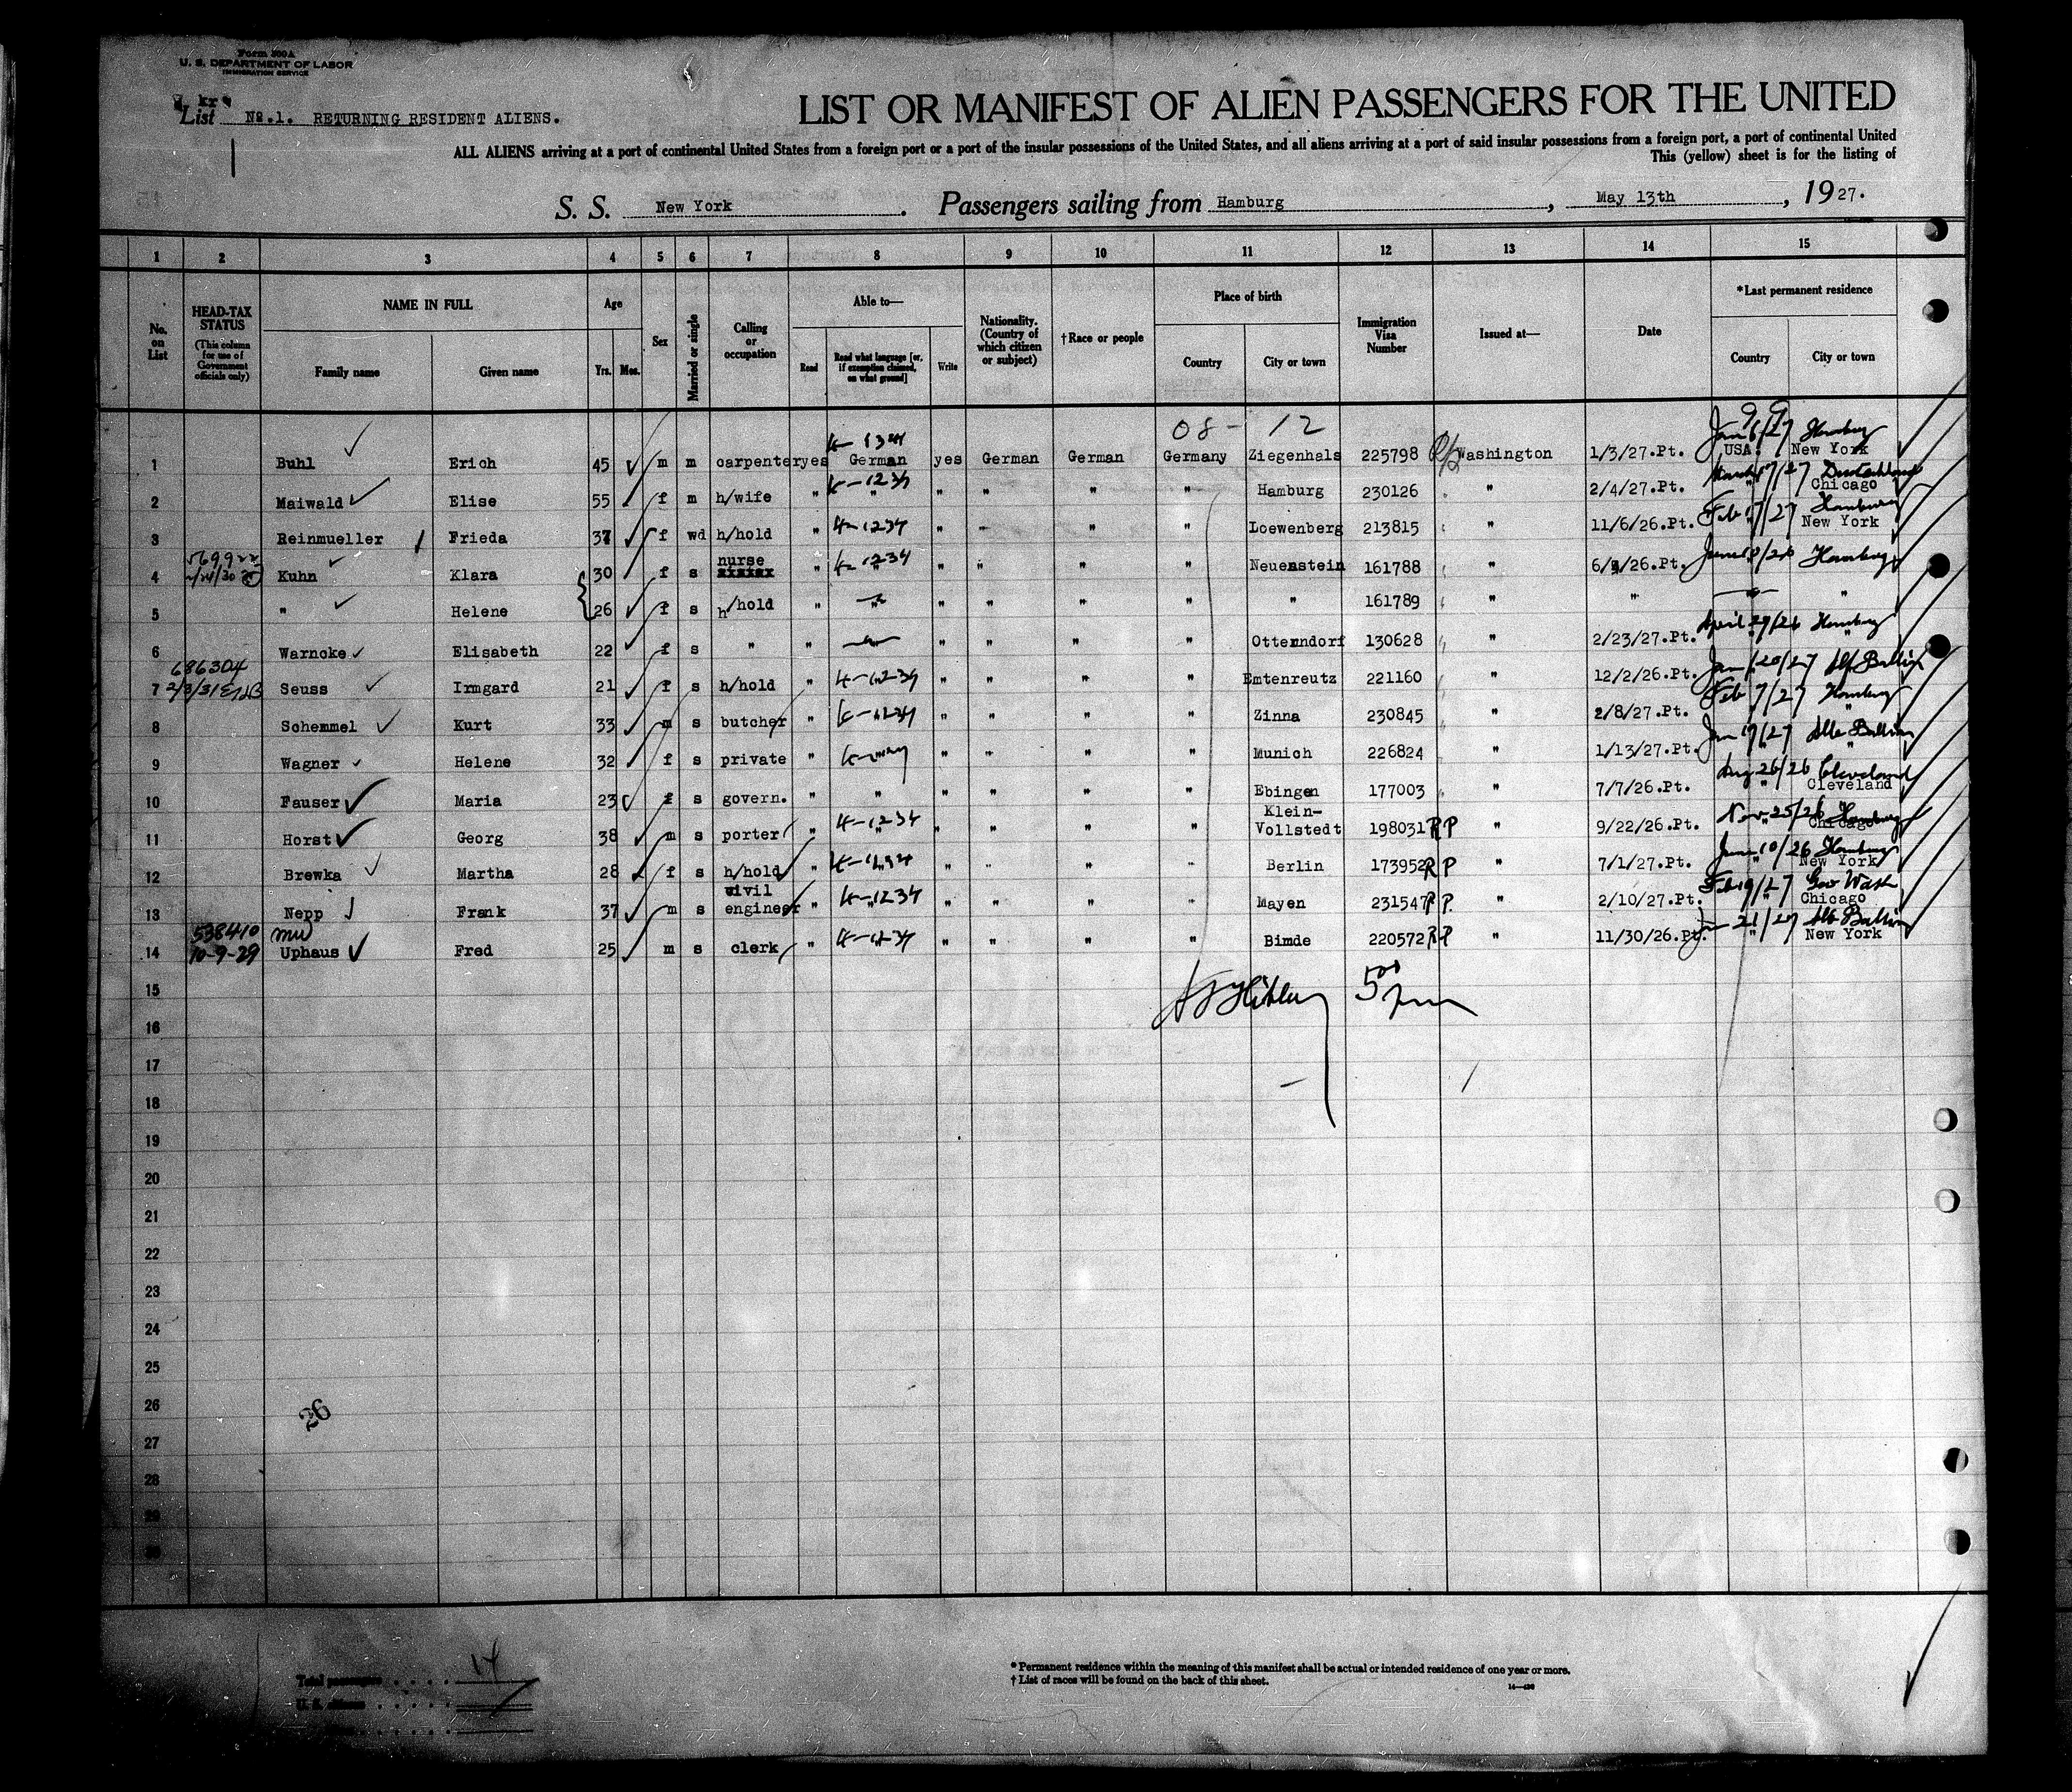 Form 500A
U. S. DEPARTMENT OF LABOR
IMMIGRATION SERVICE
kr
List No.1. RETURNING RESIDENT ALIENS.
1
LIST OR MANIFEST OF ALIEN PASSENGERS FOR THE UNITED
ALL ALIENS arriving at a port of continental United States from a foreign port or a port of the insular possessions of the United States, and all aliens arriving at a port of said insular possessions from a foreign port, a port of continental United
This (yellow) sheet is for the listing of
S. S. New York. Passengers sailing from Hamburg, May 13th, 1927.
1 2 3 4 5 6 7 8 9 10 11 12 13 14 15
No. on List
HEAD-TAX STATUS (This column for use of Government officials only)
NAME IN FULL
Family name Given name
Age
Yrs. Mos.
Sex
Married or single
Calling or occupation
Able to—
Read Read what language [or, if exemption claimed, on what ground] Write
Nationality. (Country of which citizen or subject)
†Race or people
Place of birth
Country City or town
Immigration Visa Number
Issued at—
Date
*Last permanent residence
Country City or town
08 - 12
1 Buhl Erich 45 m m carpenter yes German yes German German Germany Ziegenhals 225798 Washington 1/3/27.Pt. Jan 6/27 Hamburg USA. New York
2 Maiwald Elise 55 f m h/wife " " " " " " Hamburg 230126 " 2/4/27.Pt. March 17/27 Deutschland " Chicago
3 Reinmueller Frieda 37 f wd h/hold " 4-1234 " " " " Loewenberg 213815 " 11/6/26.Pt. Feb 17/27 Hamburg " New York
4 Kuhn Klara 30 f s nurse " 4-1234 " " " " Neuenstein 161788 " 6/9/26.Pt. June 18/26 Hamburg
5 " Helene 26 f s h/hold " " " " " " " 161789 " " " "
6 Warncke Elisabeth 22 f s " " " " " " " Otterndorf 130628 " 2/23/27.Pt. April 29/26 Hamburg
686304
7 2/3/31 Seuss Irmgard 21 f s h/hold " 4-1234 " " " " Emtenreutz 221160 " 12/2/26.Pt. Jan 20/27 Alb Ballin
8 Schemmel Kurt 33 m s butcher " 4-1234 " " " " Zinna 230845 " 2/8/27.Pt. Feb 7/27 Hamburg
9 Wagner Helene 32 f s private " " " " " Munich 226824 " 1/13/27.Pt. Jan 19/27 Alb Ballin
10 Fauser Maria 23 f s govern. " " " " " " Ebingen 177003 " 7/7/26.Pt. Aug 26/26 Cleveland " Cleveland
11 Horst Georg 38 m s porter " 4-1234 " " " " Klein-Vollstedt 198031 RP " 9/22/26.Pt. Nov 25/26 Hamburg " Chicago
12 Brewka Martha 28 f s h/hold " 4-1234 " " " " Berlin 173952 RP " 7/1/27.Pt. June 10/26 Hamburg " New York
13 Nepp Frank 37 m s civil engineer " 4-1234 " " " " Mayen 231547 RP " 2/10/27.Pt. Feb 19/27 Geo Wash " Chicago
538410
14 10-9-29 Uphaus Fred 25 m s clerk " 4-1234 " " " " Bimde 220572 RP " 11/30/26.Pt. Jan 21/27 Alb Ballin " New York
15
16
17
18
19
20
21
22
23
24
25
26
27
28
29
30
26
Total passengers 14
U. S. citizens
*Permanent residence within the meaning of this manifest shall be actual or intended residence of one year or more.
†List of races will be found on the back of this sheet.